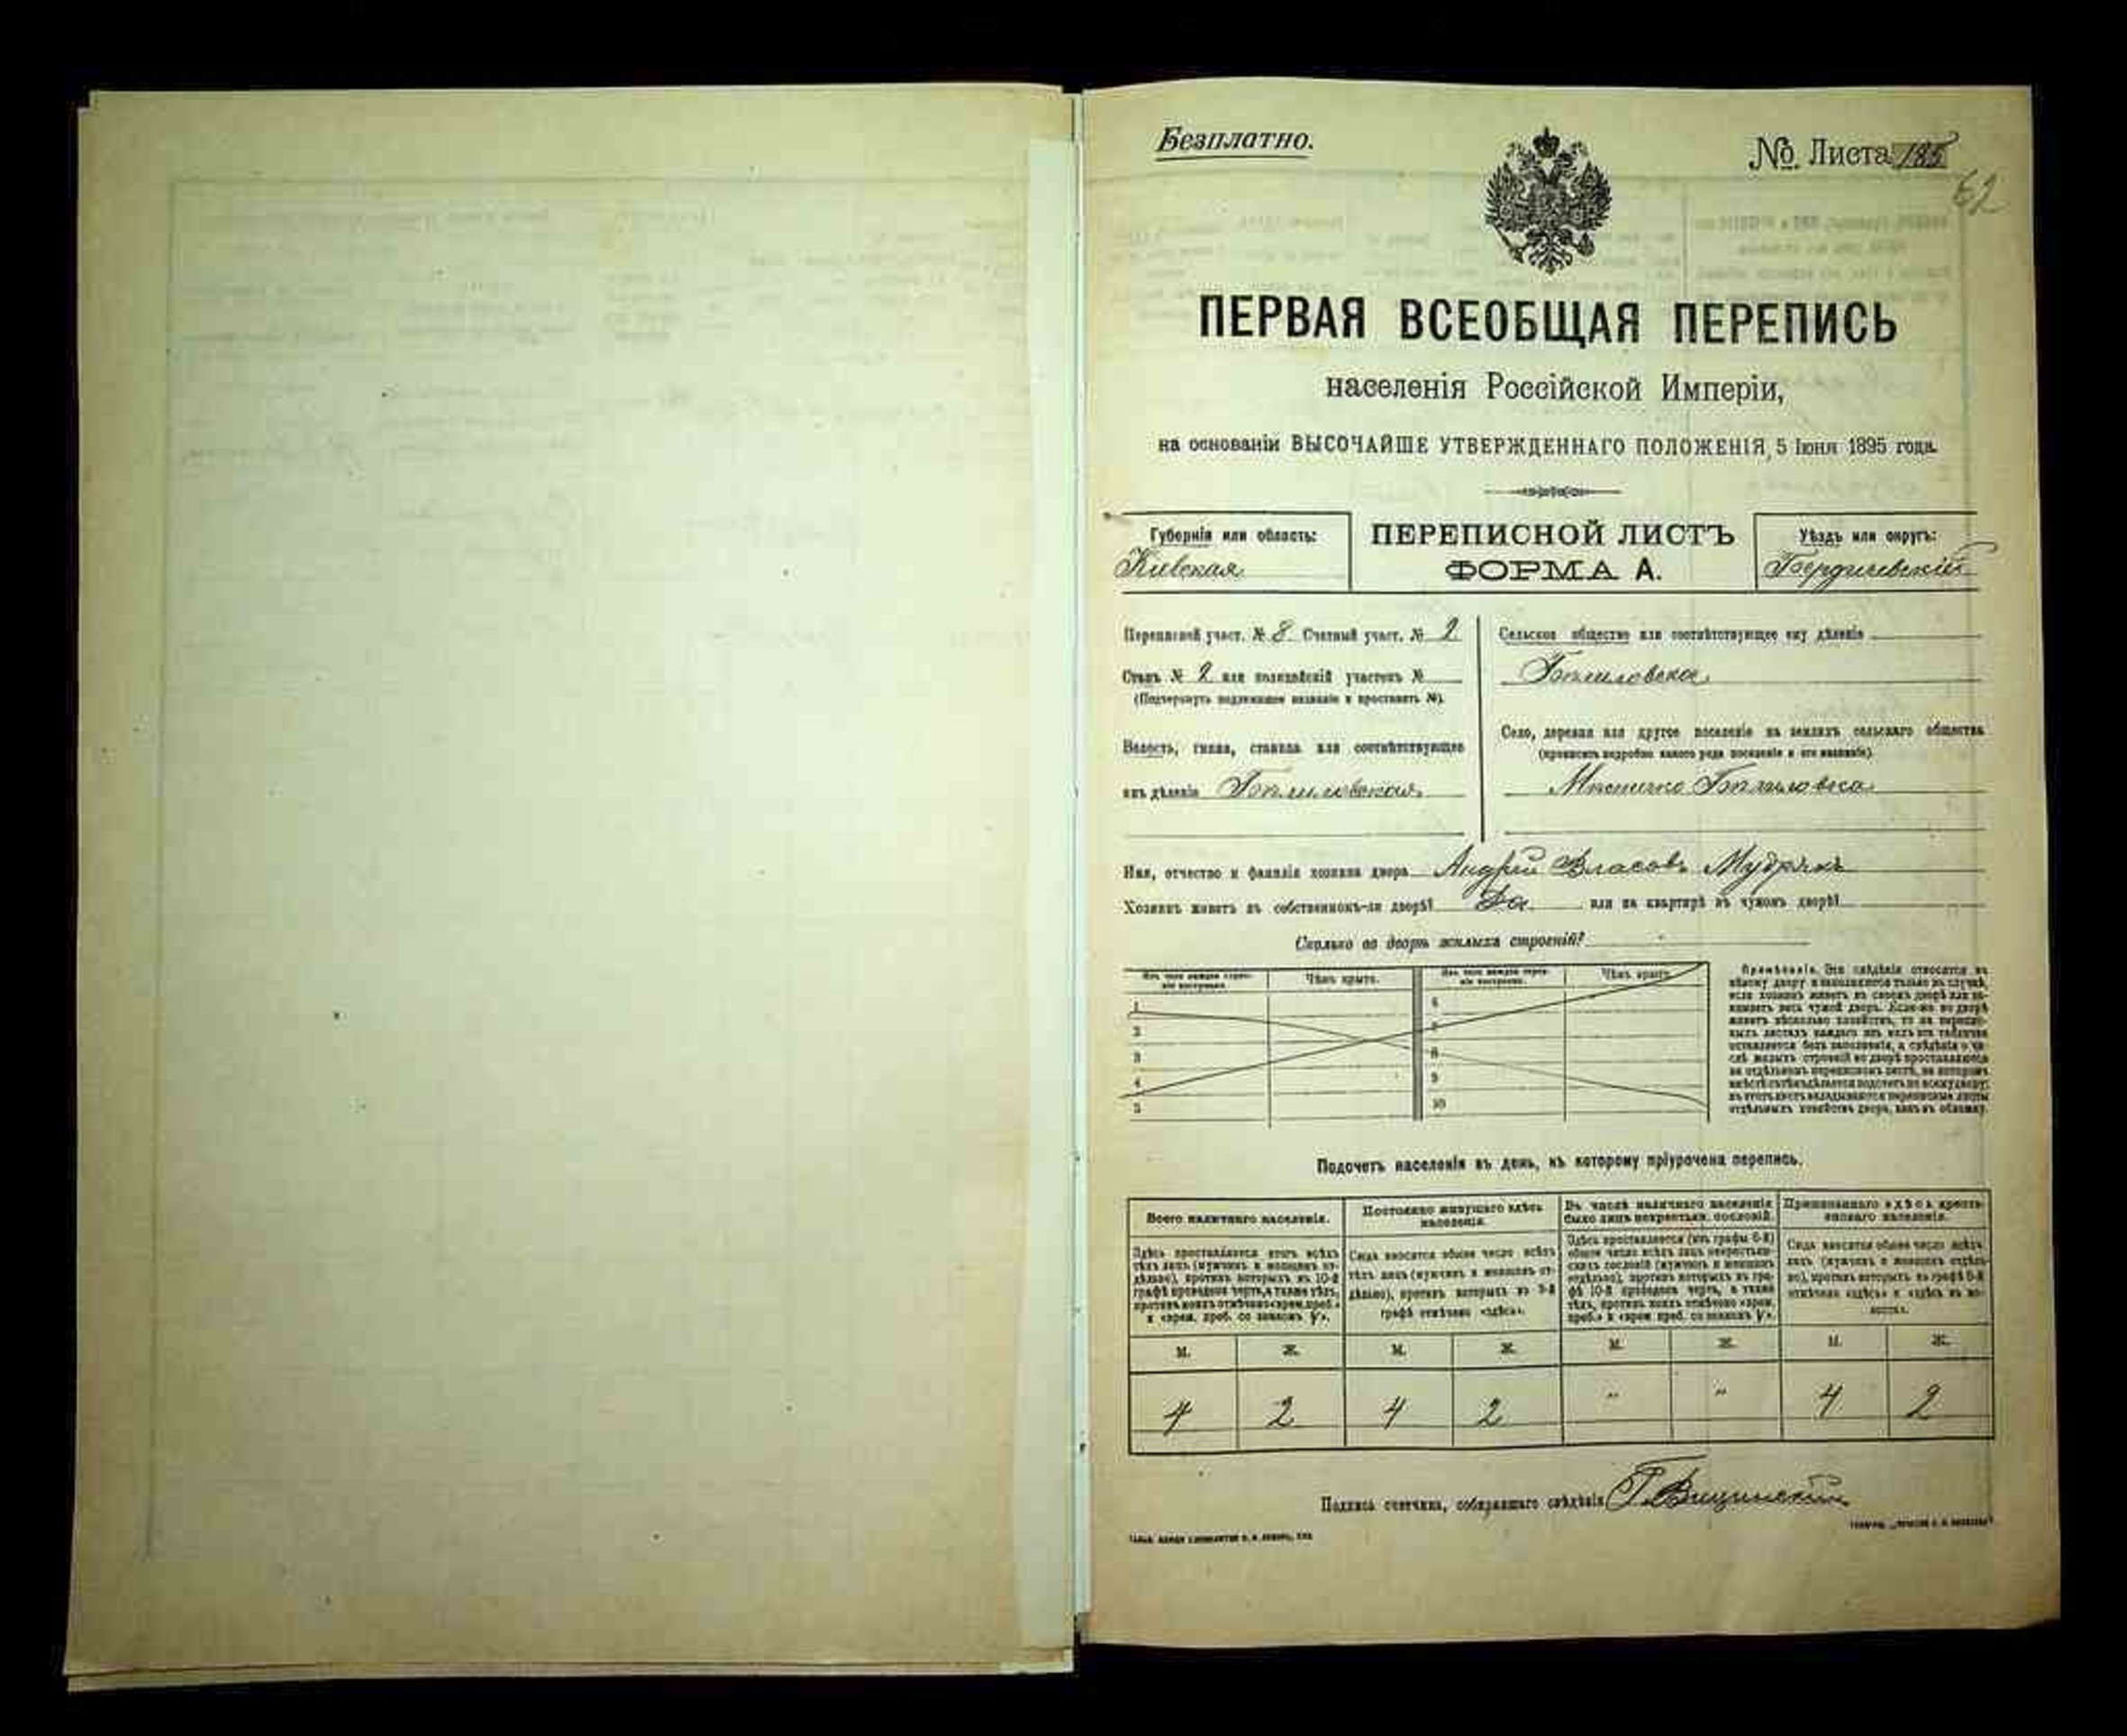 Безплатно.
№ Листа 185
62
ПЕРВАЯ ВСЕОБЩАЯ ПЕРЕПИСЬ
населенія Россійской Имперіи,
на основаніи ВЫСОЧАЙШЕ УТВЕРЖДЕННАГО ПОЛОЖЕНІЯ, 5 Іюня 1895 года.
Губернія или область:
Кіевская
ПЕРЕПИСНОЙ ЛИСТЪ
ФОРМА А.
Уѣздъ или округъ:
Бердичевскій
Переписной участ. № 8 Счетный участ. № 2
Станъ № 2 или полицейскій участокъ №
(Подчеркнуть надлежащее названіе и проставить №).
Волость, гмина, станица или соотвѣтствующее
имъ дѣленіе
Сельское общество или соотвѣтствующее ему дѣленіе
Село, деревня или другое поселеніе на земляхъ сельскаго общества
(прописать подробно какого рода поселеніе и его названіе)
Мѣстечко
Имя, отчество и фамилія хозяина двора Андрей Власовъ Мудракъ
Хозяинъ живетъ въ собственномъ-ли дворѣ? Да или на квартирѣ въ чужомъ дворѣ?
Сколько во дворѣ жилыхъ строеній?
Изъ чего каждое строе-
ніе построено.
Чѣмъ крыто.
Изъ чего каждое строе-
ніе построено.
Чѣмъ крыто.
1
2
3
4
5
6
7
8
9
10
Примѣчаніе. Эти свѣдѣнія относятся къ
цѣлому двору и заполняются только въ случаѣ,
если хозяинъ живетъ въ своемъ дворѣ или за-
нимаетъ весь чужой дворъ. Если-же во дворѣ
живетъ нѣсколько хозяйствъ, то на перепис-
ныхъ листахъ каждаго изъ нихъ эта табличка
оставляется безъ заполненія, а свѣдѣнія о чи-
слѣ жилыхъ строеній во дворѣ проставляются
на отдѣльномъ переписномъ листѣ, на которомъ
вмѣстѣ съ тѣмъ дѣлается подсчетъ по всему двору;
въ этотъ листъ вкладываются переписные листы
отдѣльныхъ хозяйствъ двора, какъ въ обложку.
Подсчетъ населенія въ день, къ которому пріурочена перепись.
Всего наличнаго населенія.
Здѣсь проставляется итогъ всѣхъ
тѣхъ лицъ (мужчинъ и женщинъ от-
дѣльно), противъ которыхъ въ 10-й
графѣ проведена черта, а также тѣхъ,
противъ коихъ отмѣчено «врем. преб.»
и «врем. преб. со знакомъ V».
Постоянно живущаго здѣсь
населенія.
Сюда вносится общее число всѣхъ
тѣхъ лицъ (мужчинъ и женщинъ от-
дѣльно), противъ которыхъ въ 9-й
графѣ отмѣчено «здѣсь».
Въ числѣ наличнаго населенія
было лицъ некрестьян. сословій.
Здѣсь проставляется (изъ графы 6-й)
общее число всѣхъ лицъ некрестьян-
скихъ сословій (мужчинъ и женщинъ
отдѣльно), противъ которыхъ въ гра-
фѣ 10-й проведена черта, а также
тѣхъ, противъ коихъ отмѣчено «врем.
преб.» и «врем. преб. со знакомъ V».
Приписаннаго здѣсь кресть-
янскаго населенія.
Сюда вносится общее число всѣхъ
лицъ (мужчинъ и женщинъ отдѣль-
но), противъ которыхъ въ графѣ 8-й
отмѣчено «здѣсь» и «здѣсь въ во-
лости».
М. Ж. М. Ж. М. Ж. М. Ж.
4 2 4 2 " " 4 2
Подпись счетчика, собиравшаго свѣдѣнія